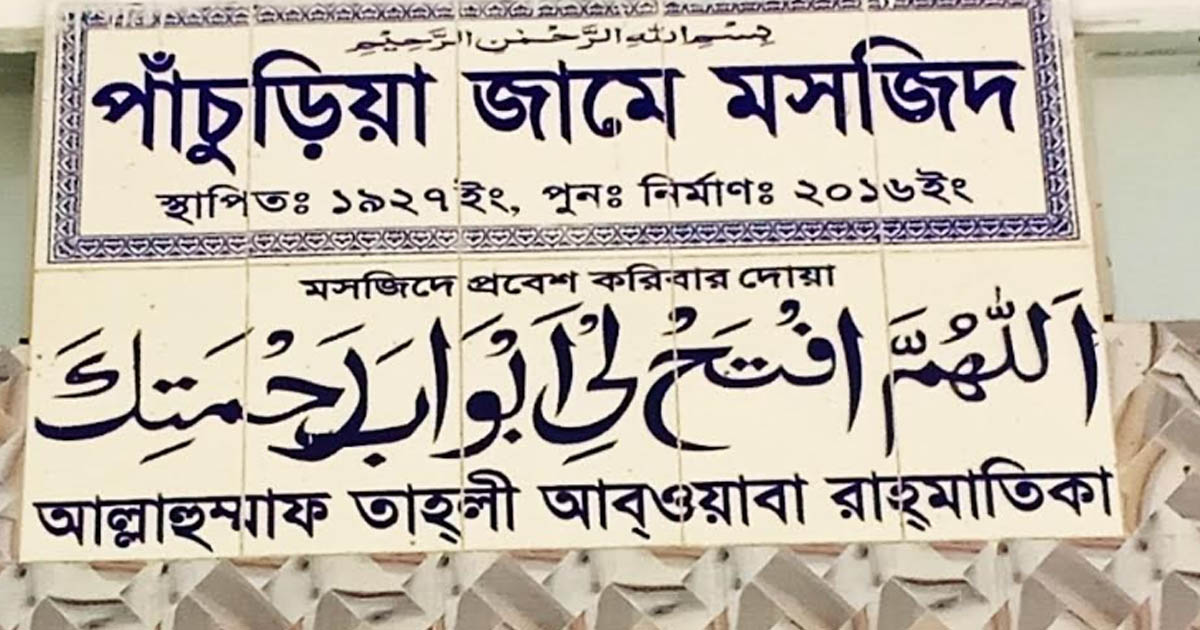 بسم الله الرحمن الرحيم
পাঁচুড়িয়া জামে মসজিদ
স্থাপিতঃ ১৯২৭ইং, পুনঃ নির্মাণঃ ২০১৬ইং
মসজিদে প্রবেশ করিবার দোয়া
اَللّٰهُمَّ افْتَحْ لِيْ اَبْوَابَ رَحْمَتِكَ
আল্লাহুম্মাফ তাহ্‌লী আব্‌ওয়াবা রাহ্‌মাতিকা